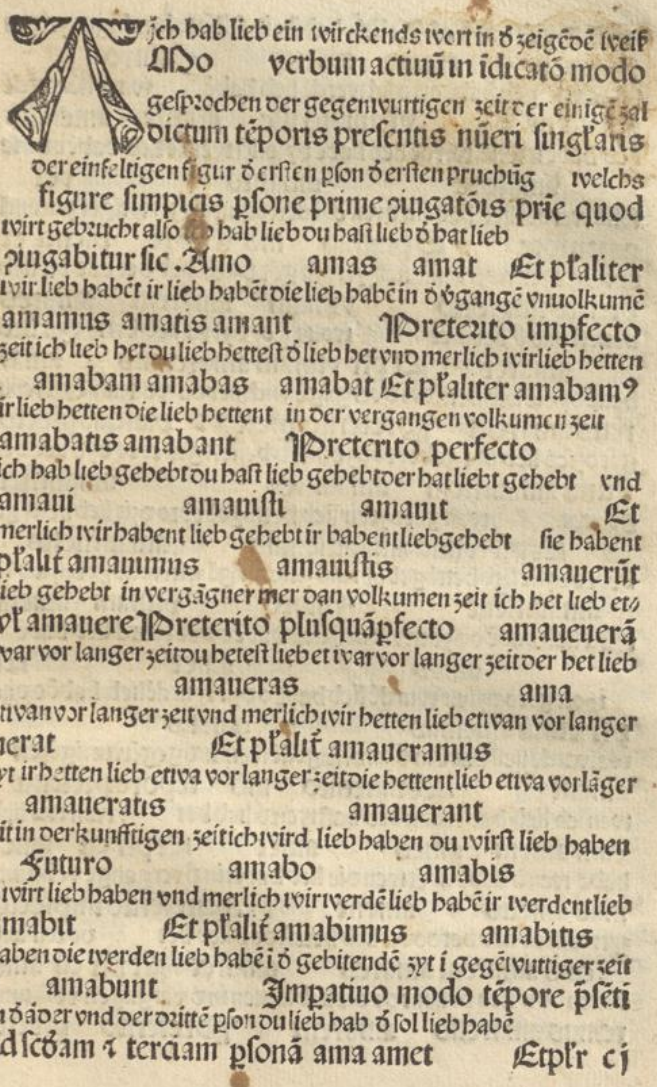 Ich hab lieb ein wirckends wert in ð zeigēdē weiß
AMo verbum actiuū in īdicatō modo
gesprochen der gegenwurtigen zeit der einigē zal
dictum tēporis presentis nūeri singľaris
der einfeltigen figur ð ersten ꝑson ð ersten pruchūg welchs
figure simplicis ꝑsone prime ꝯiugatōis prīe quod
wirt gebrucht also ich hab lieb du hast lieb ð hat lieb
ꝯiugabitur sic .Amo amas amat Et pľaliter
wir lieb habēt ir lieb habēt die lieb habē in ð v̄gangē vnuolkumē
amamus amatis amant Preterito imꝑfecto
zeit ich lieb het du lieb hettest ð lieb het vnd merlich wir lieb hetten
amabam amabas amabat Et pľaliter amabamꝰ
ir lieb hetten die lieb hettent in der vergangen volkumen zeit
amabatis amabant Preterito perfecto
ich hab lieb gehebt du hast lieb gehebt der hat liebt gehebt vnd
amaui amauisti amauit Et
merlich wir habent lieb gehebt ir habent lieb gehebt sie habent
pľalit̄ amauimus amauistis amauerūt
lieb gehebt in vergāgner mer dan volkumen zeit ich het lieb et⸗
vľ amauere Preterito plusquāꝑfecto amaueuerā
war vor langer zeit du hetest lieb etwar vor langer zeit der het lieb
amaueras ama
etwan vor langer zeit vnd merlich wir hetten lieb etwan vor langer
uerat Et pľalit̄ amaueramus
zyt ir hetten lieb etwa vor langer zeit die hettent lieb etwa vor lāger
amaueratis amauerant
zeit in der kunfftigen zeit ich wird lieb haben du wirst lieb haben
Futuro amabo amabis
wirt lieb haben vnd merlich wir werdē lieb habē ir werdent lieb
amabit Et pľalit̄ amabimus amabitis
haben die werden lieb habē ī ð gebitendē zyt ī gegēwurtiger zeit
amabunt Imꝑatiuo modo tēpore p̄sēti
ð āder vnd der dritte ꝑson du lieb hab ð sol lieb habē
ad scďam ⁊ terciam ꝑsonā ama amet Et pľr cj